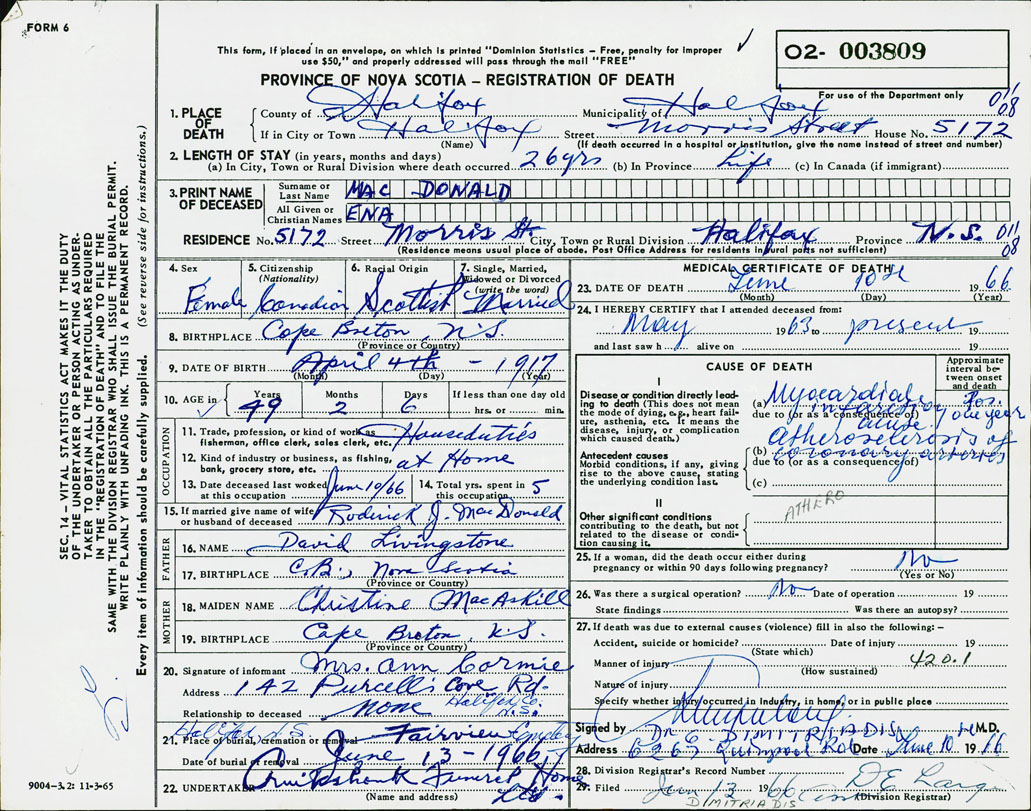 FORM 6
This form, if placed in an envelope, on which is printed "Dominion Statistics – Free, penalty for improper
use $50," and properly addressed will pass through the mail "FREE"
✓
02- 003809
PROVINCE OF NOVA SCOTIA – REGISTRATION OF DEATH
For use of the Department only
011
08
1. PLACE OF DEATH
County of Halifax Municipality of Halifax
If in City or Town Halifax Street Morris Street House No. 5172
(Name) (If death occurred in a hospital or institution, give the name instead of street and number)
2. LENGTH OF STAY (in years, months and days)
(a) In City, Town or Rural Division where death occurred 26 yrs (b) In Province Life (c) In Canada (if immigrant)
3. PRINT NAME OF DECEASED
Surname or Last Name MAC DONALD
All Given or Christian Names ENA
RESIDENCE No. 5172 Street Morris St. City, Town or Rural Division Halifax Province N.S.
011
08
(Residence means usual place of abode. Post Office Address for residents in rural parts not sufficient)
4. Sex
Female
5. Citizenship
(Nationality)
Canadian
6. Racial Origin
Scottish
7. Single, Married, Widowed or Divorced
(write the word)
Married
8. BIRTHPLACE Cape Breton, N.S.
(Province or Country)
9. DATE OF BIRTH April 4th - 1917
(Month) (Day) (Year)
10. AGE in
Years Months Days If less than one day old
✓ 49 2 6 hrs. or min.
OCCUPATION
11. Trade, profession, or kind of work as fisherman, office clerk, sales clerk, etc. Houseduties
12. Kind of industry or business, as fishing, bank, grocery store, etc. at Home
13. Date deceased last worked at this occupation June 10/66 14. Total yrs. spent in this occupation 5
15. If married give name of wife or husband of deceased Roderick J. MacDonald
FATHER
16. NAME David Livingstone
17. BIRTHPLACE C.B., Nova Scotia
(Province or Country)
MOTHER
18. MAIDEN NAME Christine MacAskill
19. BIRTHPLACE Cape Breton, N.S.
(Province or Country)
20. Signature of informant Mrs. Ann Cormie
Address 142 Purcell's Cove Rd.
Halifax Co. N.S.
Relationship to deceased None
Halifax, N.S.
21. Place of burial, cremation or removal Fairview Cemetery
Date of burial or removal June 13 - 1966
22. UNDERTAKER Cruikshank Funeral Home Ltd.
(Name and address)
MEDICAL CERTIFICATE OF DEATH
23. DATE OF DEATH June 10th 1966
(Month) (Day) (Year)
24. I HEREBY CERTIFY that I attended deceased from:
May 1963 to present 19
and last saw h alive on 19
CAUSE OF DEATH
Approximate interval between onset and death
I
Disease or condition directly leading to death (This does not mean the mode of dying, e.g., heart failure, asthenia, etc. It means the disease, injury, or complication which caused death.)
(a) Myocardial infarction
due to (or as a consequence of)
cause
Pos. one year
Antecedent causes
Morbid conditions, if any, giving rise to the above cause, stating the underlying condition last.
atherosclerosis of
(b) coronary arteries
due to (or as a consequence of)
(c)
II
Other significant conditions contributing to the death, but not related to the disease or condition causing it.
ATHERO
25. If a woman, did the death occur either during pregnancy or within 90 days following pregnancy? No
(Yes or No)
26. Was there a surgical operation? No Date of operation 19
State findings Was there an autopsy?
27. If death was due to external causes (violence) fill in also the following: –
Accident, suicide or homicide? Date of injury 19
(State which)
420.1
Manner of injury
(How sustained)
Nature of injury
Specify whether injury occurred in Industry, in home, or in public place
Signed by M.D.
Dr. C. DIMITRIADIS
Address 6265 Quinpool Rd Date June 10 1966
28. Division Registrar's Record Number
29. Filed Jun 13 1966 D E Lang
(Division Registrar)
DIMITRIADIS
SEC. 14 – VITAL STATISTICS ACT MAKES IT THE DUTY
OF THE UNDERTAKER OR PERSON ACTING AS UNDER-
TAKER TO OBTAIN ALL THE PARTICULARS REQUIRED
IN THE "REGISTRATION OF DEATH" AND TO FILE THE
SAME WITH THE DIVISION REGISTRAR WHO SHALL ISSUE THE BURIAL PERMIT.
WRITE PLAINLY WITH UNFADING INK. THIS IS A PERMANENT RECORD.
Every item of information should be carefully supplied. (See reverse side for instructions.)
9004-3.2: 11-3-65